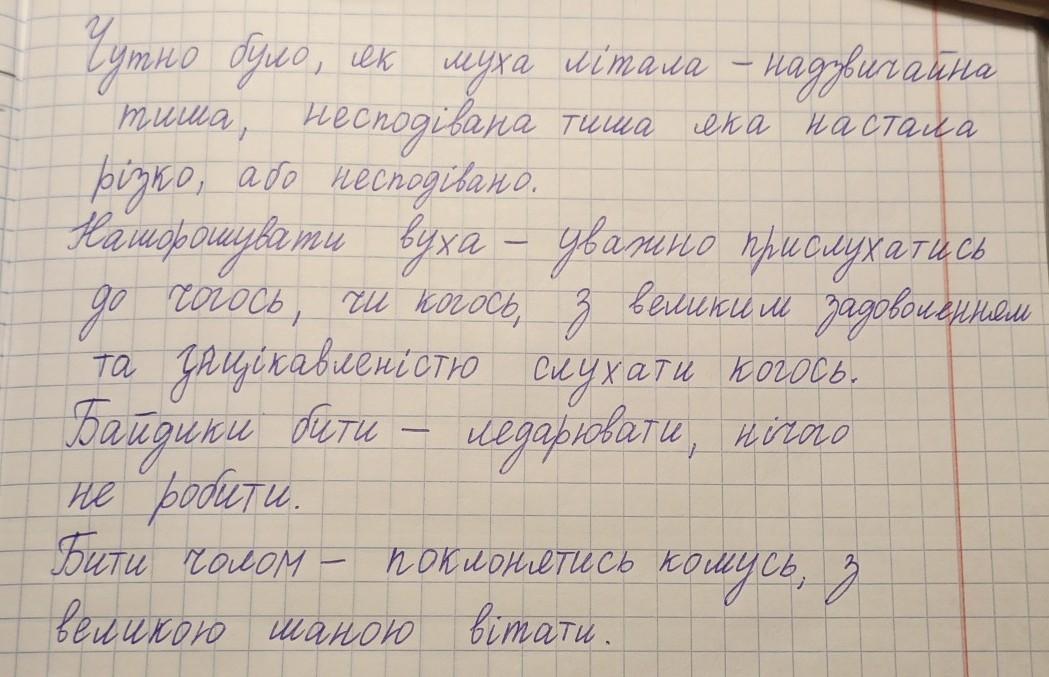 Чутно було, як муха літала – надзвичайна
тиша, несподівана тиша яка настала
різко, або несподівано.
Нашорошувати вуха – уважно прислухатись
до чогось, чи когось, з великим задоволенням
та зацікавленістю слухати когось.
Байдики бити – ледарювати, нічого
не робити.
Бити чолом – поклонятись комусь, з
великою шаною вітати.